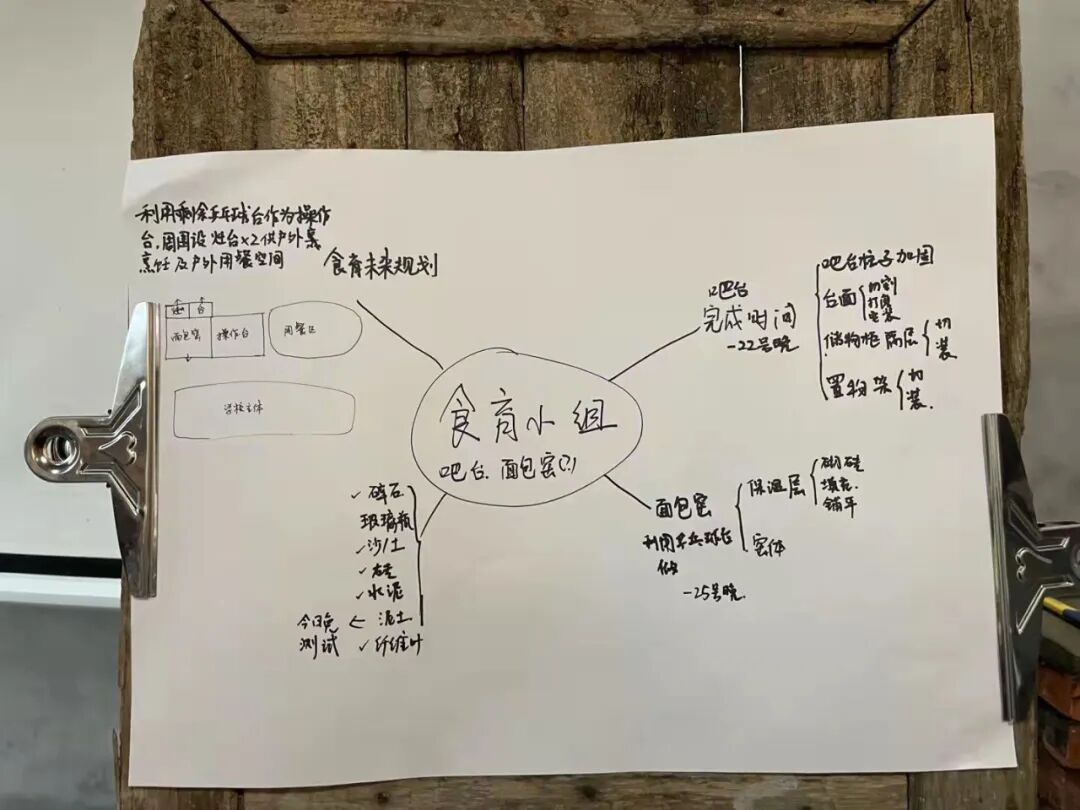 利用剩余乒乓球台作为操作
台,周围设灶台×2供户外烹
烹饪及户外用餐空间
食育未来规划
灶 台
面包窑 操作台 用餐区
学校主体
食育小组
吧台.面包窑(?)
吧台
完成时间
-22号晚
吧台柱子加固
台面
切割
打磨
安装
储物柜隔层
切
装
置物架
切
装.
面包窑
利用乒乓球台
做
-25号晚.
保温层
砌砖
填充.
铺平
窑体
✓碎石
玻璃瓶
✓沙/土
✓砖
✓水泥
今日晚 ← 泥土.
测试 ✓纤维叶